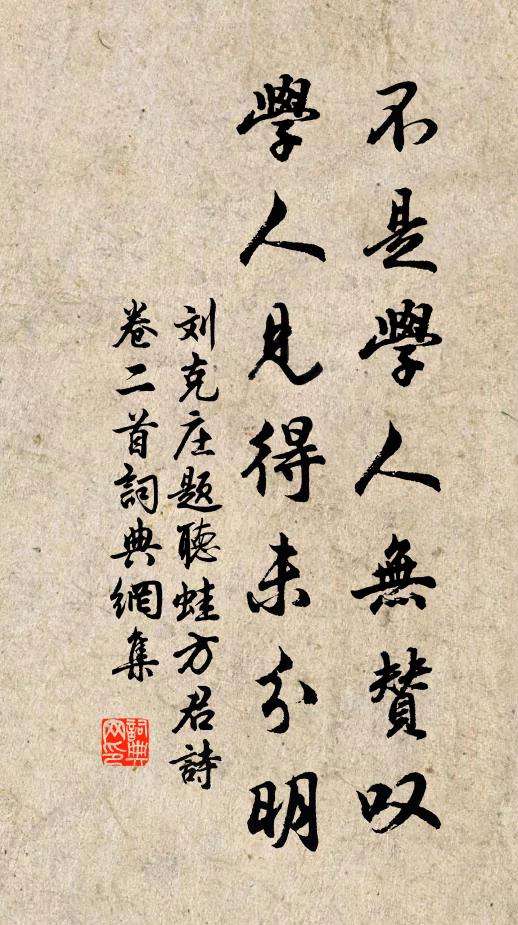 不是學人無贊叹
學人見得未分明
刘克庄題聽蛙方君詩
卷二首詞典網集
詞典
网印